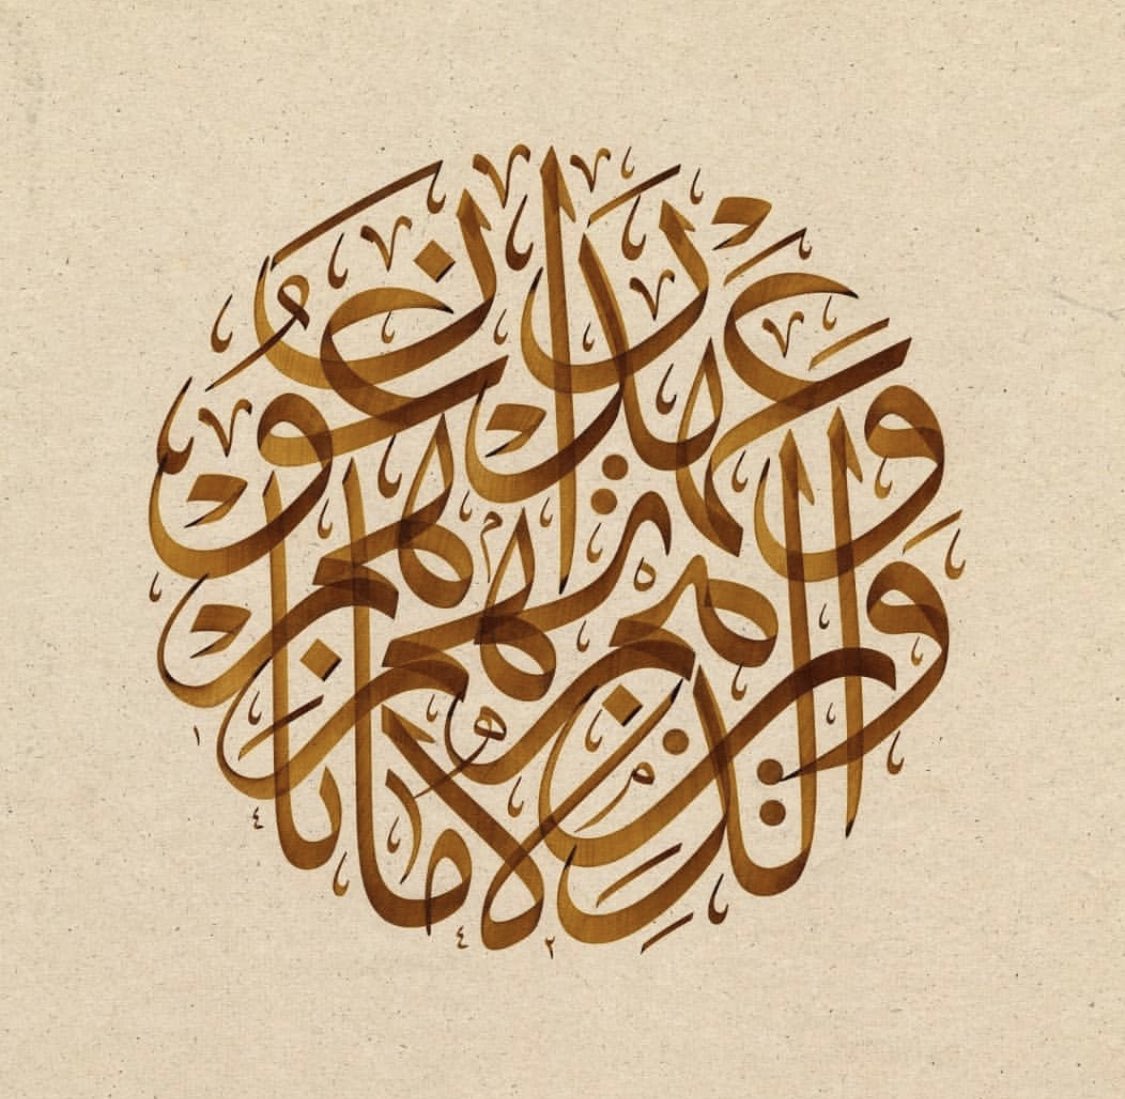 والذين هم لأماناتهم وعهدهم راعون
١٤٤٢